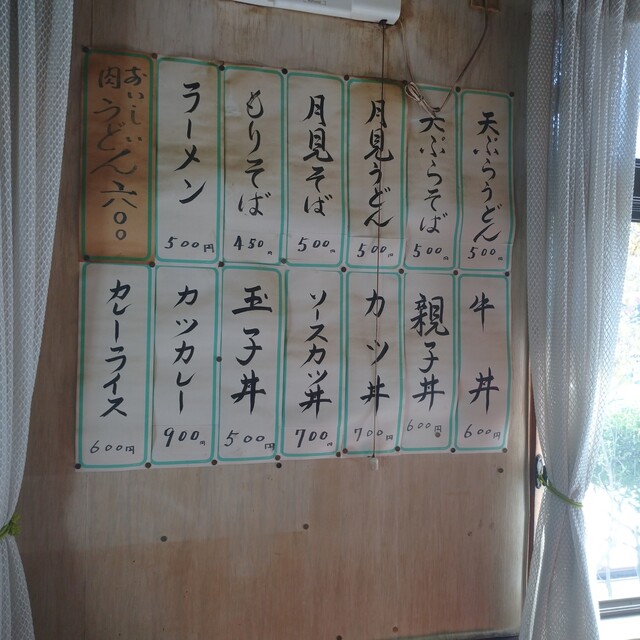 天ぷらうどん
500円
天ぷらそば
500円
月見うどん
500円
月見そば
500円
もりそば
450円
ラーメン
500円
おいしい
肉うどん 六〇〇
牛丼
600円
親子丼
600円
カツ丼
700円
ソースカツ丼
700円
玉子丼
500円
カツカレー
900円
カレーライス
600円